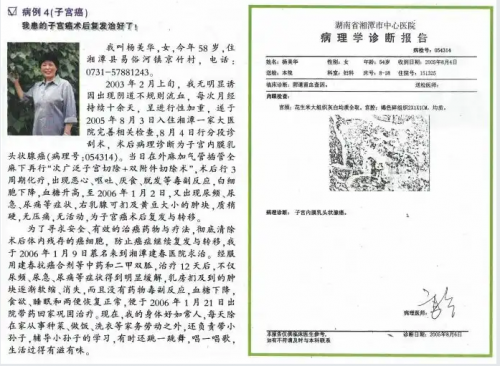 病例4(子宫癌)
我患的子宫癌术后复发治好了!
我叫杨美华,女,今年58岁,住
湘潭县易俗河镇京竹村,电话:
0731-57881243。
2003年2月上旬,我无明显诱
因出现阴道不规则流血,每次月经
持续十余天,呈进行性加重,遂于
2005年8月3日入住湘潭一家大医
院完善相关检查,8月4日行分段诊
刮术,术后病理诊断为子宫内膜乳
头状腺癌(病理号:054314)。当日在外麻加气管插管全
麻下再行“次广泛子宫切除+双附件切除术”,术后行3
周期化疗,出现恶心、呕吐、厌食、脱发等毒副反应,白细
胞下降,血糖升高,至2006年1月2日,又出现尿频、尿
急、尿痛等症状,右乳腺可扪及黄豆大小的肿块,质稍
硬,无压痛,无活动,为子宫癌术后复发与转移。
为了寻求安全、有效的治癌药物与疗法,彻底清除
术后体内残存的癌细胞,防止癌症继续复发与转移,我
于2006年1月9日慕名来到湘潭建春医院求治。经服
用建春抗癌合剂等中药和二甲双胍,治疗12天后,不仅
尿频、尿急、尿痛等症状得到明显缓解,乳房扪及到的肿
块逐渐软缩、消失,而且没有药物毒副反应,血糖下降,
食欲、睡眠和两便恢复正常,便于2006年1月21日出
院带药回家巩固治疗。现在,我的身体好如常人,每天除
在家从事种菜、做饭、洗衣等家务劳动之外,还负责带小
孙子,辅导小孙子的学习,有时还跳一跳舞,唱一唱歌,
生活过得有滋有味。
湖南省湘潭市中心医院
病理学诊断报告
病检号:054314
姓名:杨美华 性别:女 年龄:54岁 日期:2005年8月4日
送检:本院 科室:妇科 床号:8-28 住院号:151325
临床诊断:阴道流血查因。 送检医师:
肉眼检查:
宫颈:花生米大组织灰白均质全取。宫腔:褐色碎组织2X1X1CM,均质。
病理诊断:子宫内膜乳头状腺癌。
病理医师:
本报告仅供临床医生参考。 诊断日期:2005年8月6日
如有不符请及时与本科联系